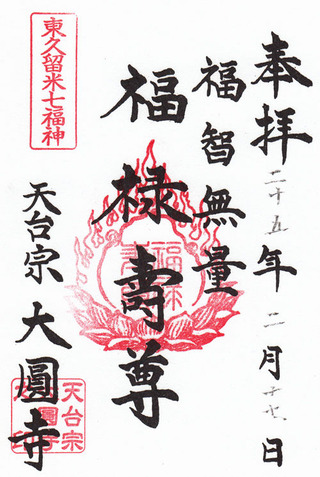 奉拝 二十五年 二月 十六日
福智無量
福禄壽尊
東久留米七福神
天台宗 大圓寺
福禄壽
天台宗
大圓寺印